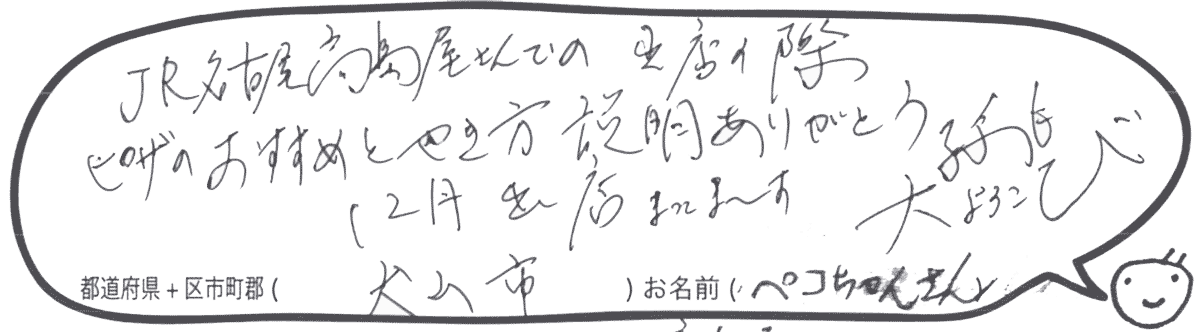 JR名古屋高島屋さんでの出店の際
ピザのおすすめとやき方説明ありがとう
孫も
大よろこび
12月出店まってま〜す
都道府県+区市町郡(犬山市)お名前(ペコちゃんさん